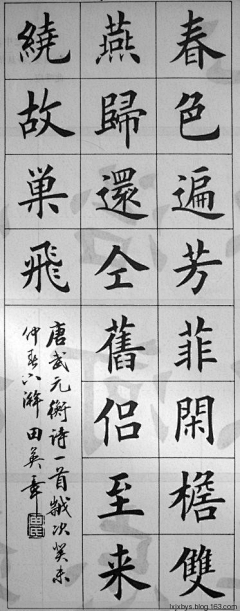 春色遍芳菲閑檐雙
燕歸還仝舊侶至来
繞故巣飛
唐武元衡诗一首歲次癸未
仲春下澣田英章
lxjxbys.blog.163.com